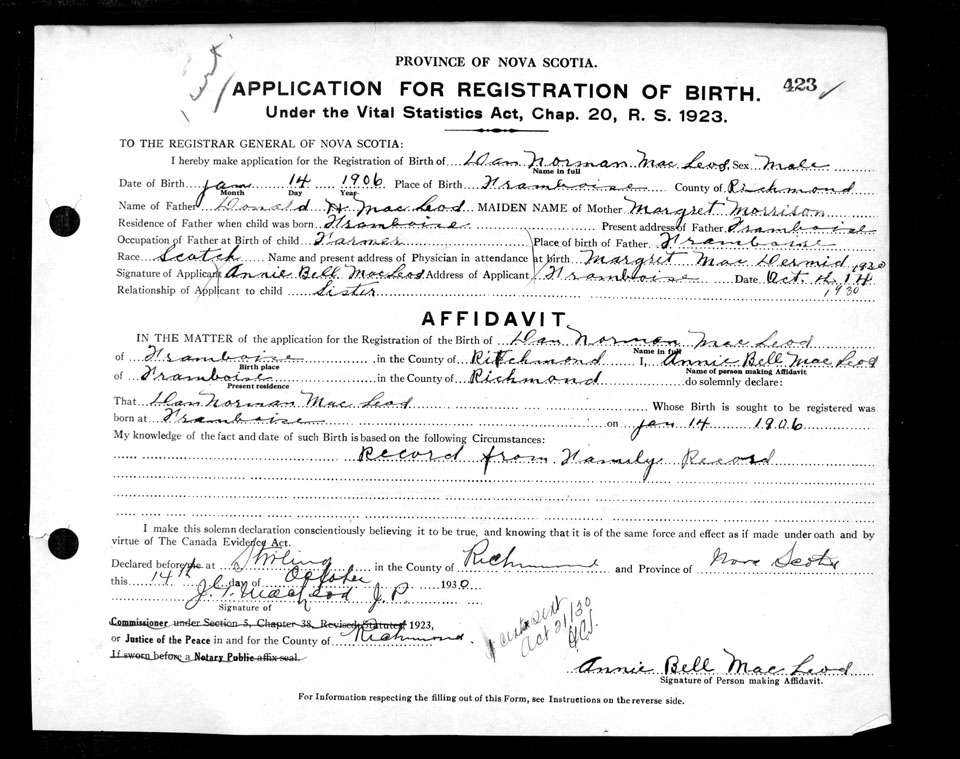 PROVINCE OF NOVA SCOTIA.
423
APPLICATION FOR REGISTRATION OF BIRTH.
Under the Vital Statistics Act, Chap. 20, R. S. 1923.
TO THE REGISTRAR GENERAL OF NOVA SCOTIA:
I hereby make application for the Registration of Birth of Dan Norman Mac Leod Sex Male
Name in full
Date of Birth Jan 14 1906 Place of Birth Framboise County of Richmond
Month Day Year
Name of Father Donald H Mac Leod MAIDEN NAME of Mother Margret Morrison
Residence of Father when child was born Framboise Present address of Father Framboise
Occupation of Father at Birth of child Farmer Place of birth of Father Framboise
Race Scotch Name and present address of Physician in attendance at birth Margret Mac Dermid 1930
Signature of Applicant Annie Bell MacLeod Address of Applicant Framboise Date Oct. 14
Relationship of Applicant to child Sister 1930
AFFIDAVIT
IN THE MATTER of the application for the Registration of the Birth of Dan Norman Mac Leod
Name in full
of Framboise in the County of Richmond I, Annie Bell Mac Leod
Birth place Name of person making Affidavit
of Framboise in the County of Richmond do solemnly declare:
Present residence
That Dan Norman Mac Leod Whose Birth is sought to be registered was
born at Framboise on Jan 14 1906
My knowledge of the fact and date of such Birth is based on the following Circumstances:
Record from Family Record
I make this solemn declaration conscientiously believing it to be true, and knowing that it is of the same force and effect as if made under oath and by
virtue of The Canada Evidence Act.
Declared before me at Stirling in the County of Richmond and Province of Nova Scotia
this 14th day of October 1930
J. T. MacLeod J. P.
Signature of
Commissioner under Section 5, Chapter 38, Revised Statutes 1923,
or Justice of the Peace in and for the County of Richmond.
If sworn before a Notary Public affix seal.
cert sent
Oct 21/30
Annie Bell Mac Leod
Signature of Person making Affidavit.
For Information respecting the filling out of this Form, see Instructions on the reverse side.